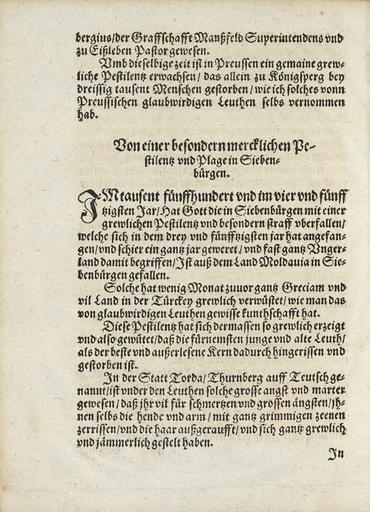 bergius/der Graffschafft Manßfeld Superintendens vnd
zu Eißleben Pastor gewesen.
Vmb dieselbige zeit ist in Preussen ein gemaine grew-
liche Pestilentz erwachsen/ das allein zu Königsperg bey
dreissig tausent Menschen gestorben/ wie ich solches vonn
Preussischen glaubwirdigen Leuthen selbs vernommen
hab.
Von einer besondern mercklichen Pe-
stilentz vnd Plage in Sieben-
bürgen.
IM tausent fünffhundert vnd im vier vnd fünff
tzigsten Jar/ Hat Gott die in Siebenbürgen mit einer
grewlichen Pestilentz vnd besondern straff vberfallen/
welche sich in dem drey vnd fünfftzigsten jar hat angefan-
gen/ vnd schier ein gantz jar geweret/ vnd fast gantz Vnger-
land damit begriffen/ Ist auß dem Land Moldauia in Sie-
benbürgen gefallen.
Solche hat wenig Monat zuuor gantz Greciam vnd
vil Land in der Türckey grewlich verwüstet/ wie man das
von glaubwirdigen Leuthen gewisse kunthschafft hat.
Diese Pestilentz hat sich dermassen so grewlich erzeigt
vnd also gewütet/ daß die fürnemsten junge vnd alte Leuth/
als der beste vnd außerlesene Kern dadurch hingerissen vnd
gestorben ist.
In der Statt Torda/ Thurnberg auff Teutsch ge-
nannt/ ist vnder den Leuthen solche grosse angst vnd marter
gewesen/ daß jhr vil für schmertzen vnd grossen ängsten/ jh-
nen selbs die hende vnd arm/ mit gantz grimmigen zeenen
zerrissen/ vnd die haar außgeraufft/ vnd sich gantz grewlich
vnd jämmerlich gestelt haben.
In